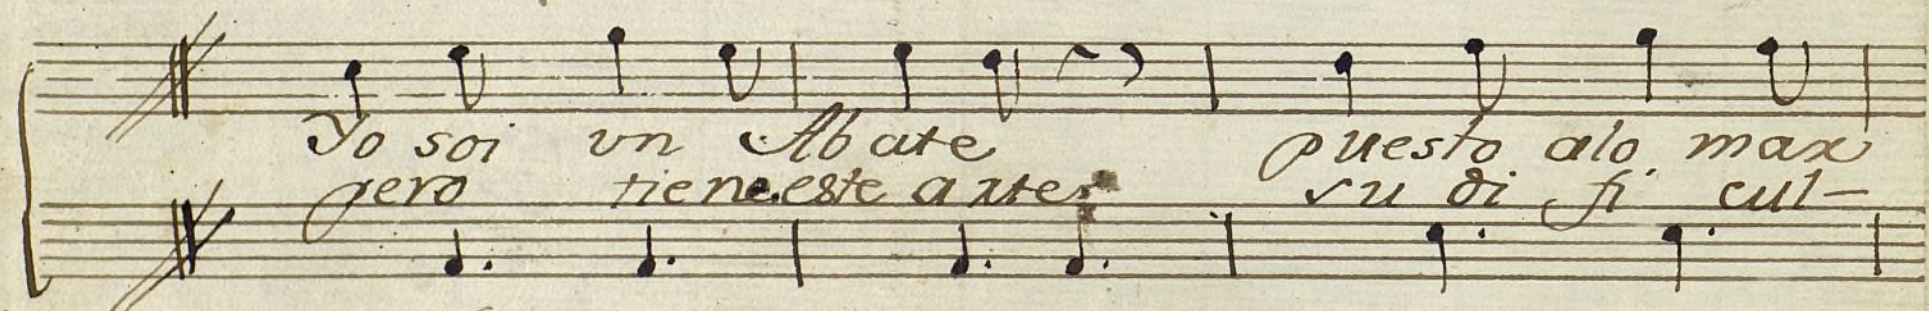 Yo soi vn Abate puesto alo max
pero tiene este arte su di fi cul-